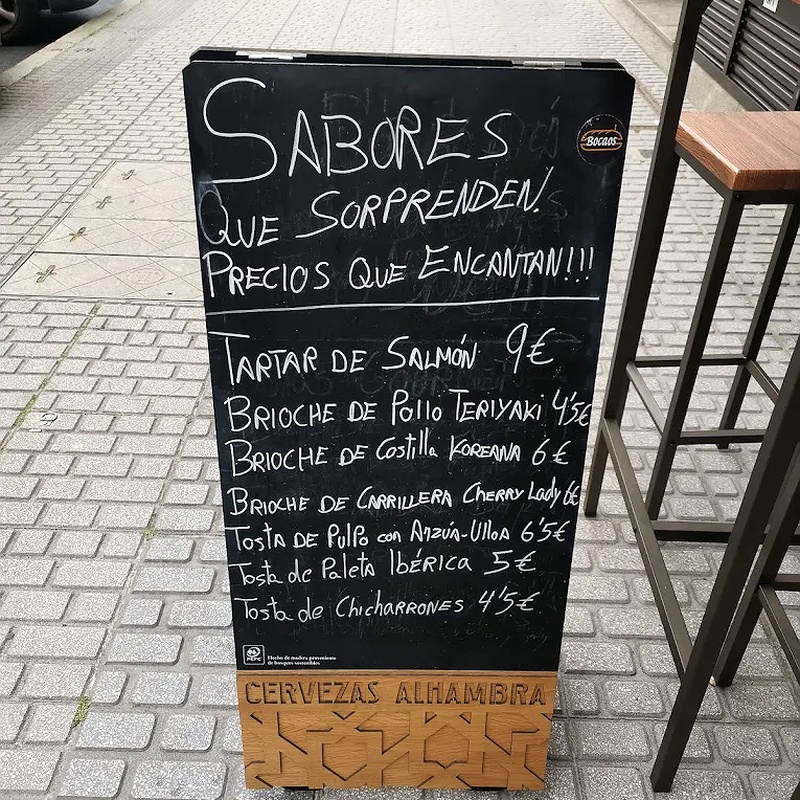 SABORES
Bocaos
QUE SORPRENDEN!
PRECIOS QUE ENCANTAN!!!
TARTAR DE SALMÓN 9€
BRIOCHE DE Pollo TERIYAKI 4'5€
BRIOCHE DE Costilla KOREANA 6€
BRIOCHE DE CARRILLERA CHERRY Lady 6€
Tosta DE PULPO con ARZÚA-Ulloa 6'5€
Tosta de Paleta Ibérica 5€
Tosta de Chicharrones 4'5€
PEFC
Hecho de madera proveniente
de bosques sostenibles.
CERVEZAS ALHAMBRA